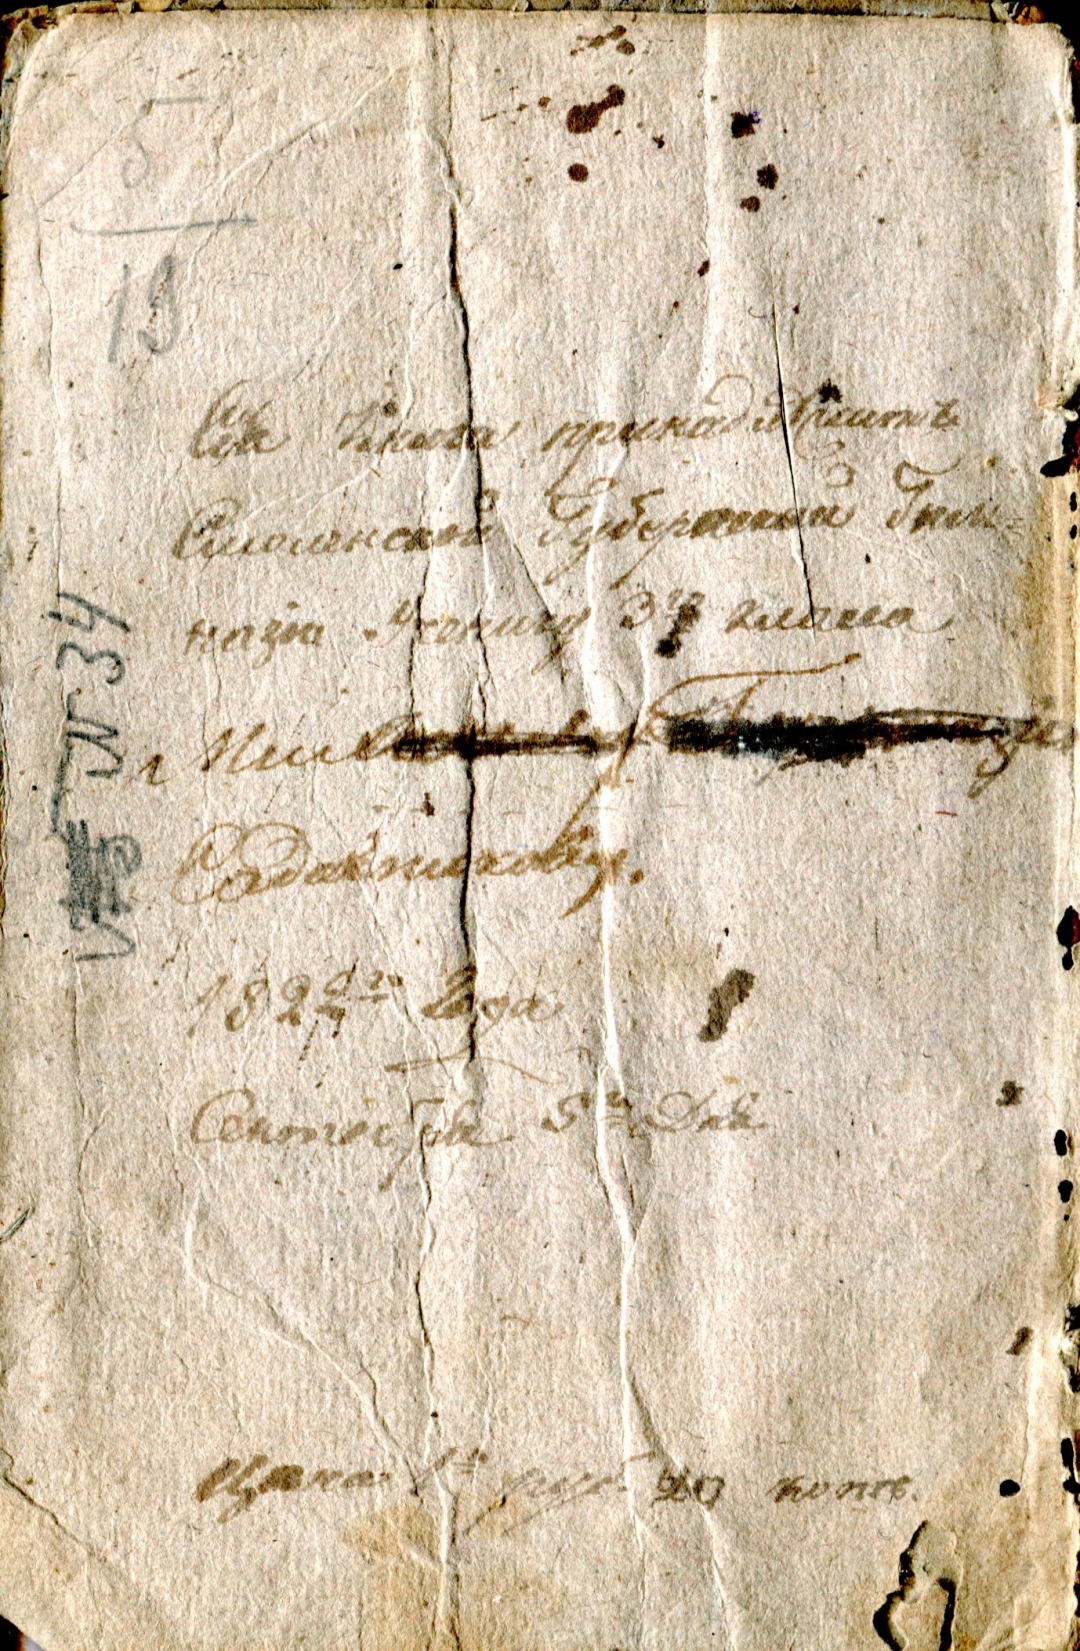 19
№ 34
Сія Книга принадлѣжитъ
Смоленской Губернской Гим=
назіи Ученику 3го класса
Садовникову.
182 Года
Сентября 5го Дня
Цена 1 руб. 20 копѣ.